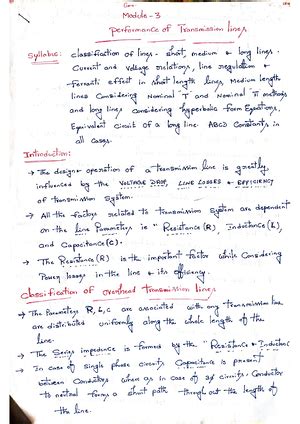 Module - 3
Performance of Transmission lines
Syllabus: classification of lines - short, medium & long lines -
Current and voltage relations, line regulation &
Ferranti effect in short length lines, Medium length
lines Considering Nominal T and Nominal π methods
and long lines considering hyperbolic form Equations,
Equivalent Circuit of a long line ABCD Constants in
all cases.
Introduction:
→ The design or operation of a transmission line is greatly
influenced by the VOLTAGE DROP, LINE LOSSES & EFFICIENCY
of transmission System.
→ All the factors related to transmission System are dependent
on the line Parameters i.e Resistance (R), Inductance (L),
and Capacitance (C).
→ The Resistance (R) is the important factor while Considering
Power losses in the line & its efficiency.
classification of overhead transmission lines
→ The Parameters R, L, C are associated with any transmission line
are distributed uniformly along the whole length of the
line.
→ The Series impedance is formed by the "Resistance & Inductance
→ In case of Single phase circuits Capacitance is present
between Conductors where as in case of 3ϕ circuits, Conductor
to neutral forms a shunt path through out the length of
the line.